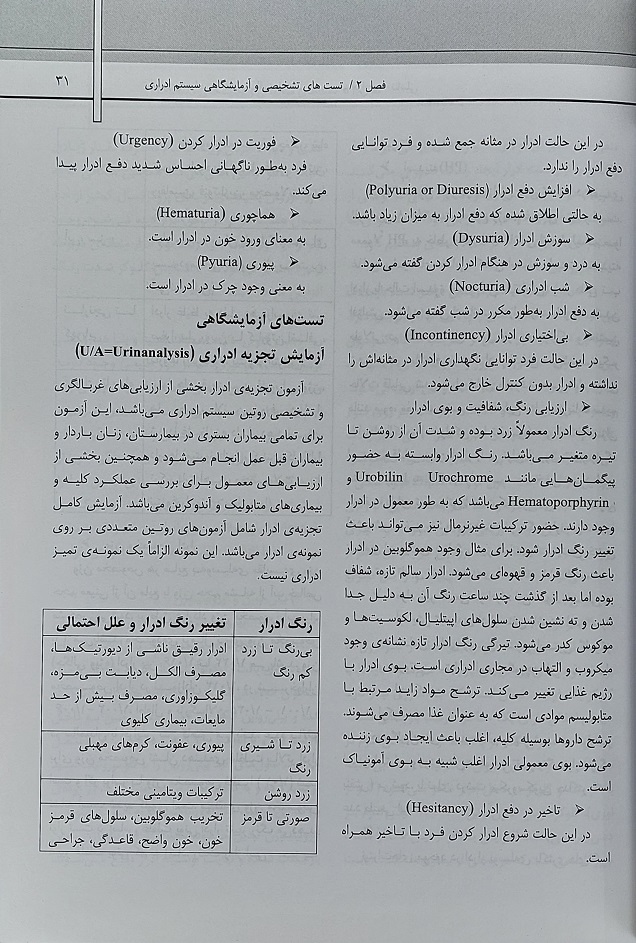 فصل ۲ / تست های تشخیصی و آزمایشگاهی سیستم ادراری
۳۱
در این حالت ادرار در مثانه جمع شده و فرد توانایی
دفع ادرار را ندارد.
➤ افزایش دفع ادرار (Polyuria or Diuresis)
به حالتی اطلاق شده که دفع ادرار به میزان زیاد باشد.
➤ سوزش ادرار (Dysuria)
به درد و سوزش در هنگام ادرار کردن گفته می‌شود.
➤ شب ادراری (Nocturia)
به دفع ادرار به‌طور مکرر در شب گفته می‌شود.
➤ بی‌اختیاری ادرار (Incontinency)
در این حالت فرد توانایی نگهداری ادرار در مثانه‌اش را
نداشته و ادرار بدون کنترل خارج می‌شود.
➤ ارزیابی رنگ، شفافیت و بوی ادرار
رنگ ادرار معمولاً زرد بوده و شدت آن از روشن تا
تیره متغیر می‌باشد. رنگ ادرار وابسته به حضور
پیگمان‌هایی مانند Urobilin Urochrome و
Hematoporphyrin می‌باشد که به طور معمول در ادرار
وجود دارند. حضور ترکیبات غیرنرمال نیز می‌تواند باعث
تغییر رنگ ادرار شود. برای مثال وجود هموگلوبین در ادرار
باعث رنگ قرمز و قهوه‌ای می‌شود. ادرار سالم تازه، شفاف
بوده اما بعد از گذشت چند ساعت رنگ آن به دلیل جدا
شدن و ته نشین شدن سلول‌های اپیتلیال، لکوسیت‌ها و
موکوس کدر می‌شود. تیرگی رنگ ادرار تازه نشانه‌ی وجود
میکروب و التهاب در مجاری ادراری است. بوی ادرار با
رژیم غذایی تغییر می‌کند. ترشح مواد زاید مرتبط با
متابولیسم موادی است که به عنوان غذا مصرف می‌شوند.
ترشح داروها بوسیله کلیه، اغلب باعث ایجاد بوی زننده
می‌شود. بوی معمولی ادرار اغلب شبیه به بوی آمونیاک
است.
➤ تاخیر در دفع ادرار (Hesitancy)
در این حالت شروع ادرار کردن فرد با تاخیر همراه
است.
➤ فوریت در ادرار کردن (Urgency)
فرد به‌طور ناگهانی احساس شدید دفع ادرار پیدا
می‌کند.
➤ هماچوری (Hematuria)
به معنای ورود خون در ادرار است.
➤ پیوری (Pyuria)
به معنی وجود چرک در ادرار است.
تست‌های آزمایشگاهی
آزمایش تجزیه ادراری (U/A=Urinanalysis)
آزمون تجزیه‌ی ادرار بخشی از ارزیابی‌های غربالگری
و تشخیصی روتین سیستم ادراری می‌باشد، این آزمون
برای تمامی بیماران بستری در بیمارستان، زنان باردار و
بیماران قبل عمل انجام می‌شود و همچنین بخشی از
ارزیابی‌های معمول برای بررسی عملکرد کلیه و
بیماری‌های متابولیک و آندوکرین می‌باشد. آزمایش کامل
تجزیه‌ی ادرار شامل آزمون‌های روتین متعددی بر روی
نمونه‌ی ادرار می‌باشد. این نمونه الزاماً یک نمونه‌ی تمیز
ادراری نیست.
رنگ ادرار | تغییر رنگ ادرار و علل احتمالی
بی‌رنگ تا زرد | ادرار رقیق ناشی از دیورتیک‌ها،
کم رنگ | مصرف الکل، دیابت بی‌مزه،
گلیکوزاوری، مصرف بیش از حد
مایعات، بیماری کلیوی
زرد تا شیری | پیوری، عفونت، کرم‌های مهبلی
رنگ
زرد روشن | ترکیبات ویتامینی مختلف
صورتی تا قرمز | تخریب هموگلوبین، سلول‌های قرمز
خون، خون واضح، قاعدگی، جراحی